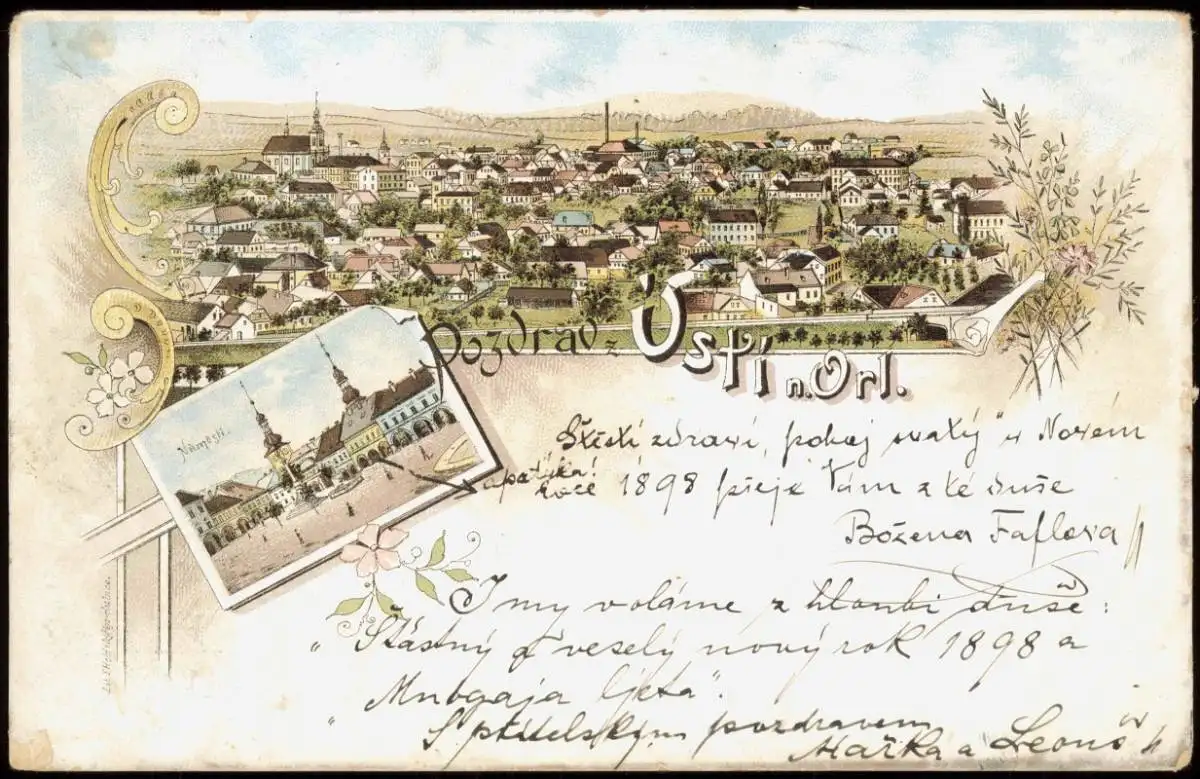 Pozdrav z Ústí n. Orl.
Náměstí.
apatyka!
Štěstí zdraví, pokoj svatý" v Novém
roce 1898 přeje Vám z té duše
Božena Faflova
I my voláme z hloubi duše:
"Štastný a veselý nový rok 1898 a
"Mnogaja ljeta".
S přátelským pozdravem
Mařka a Leoš